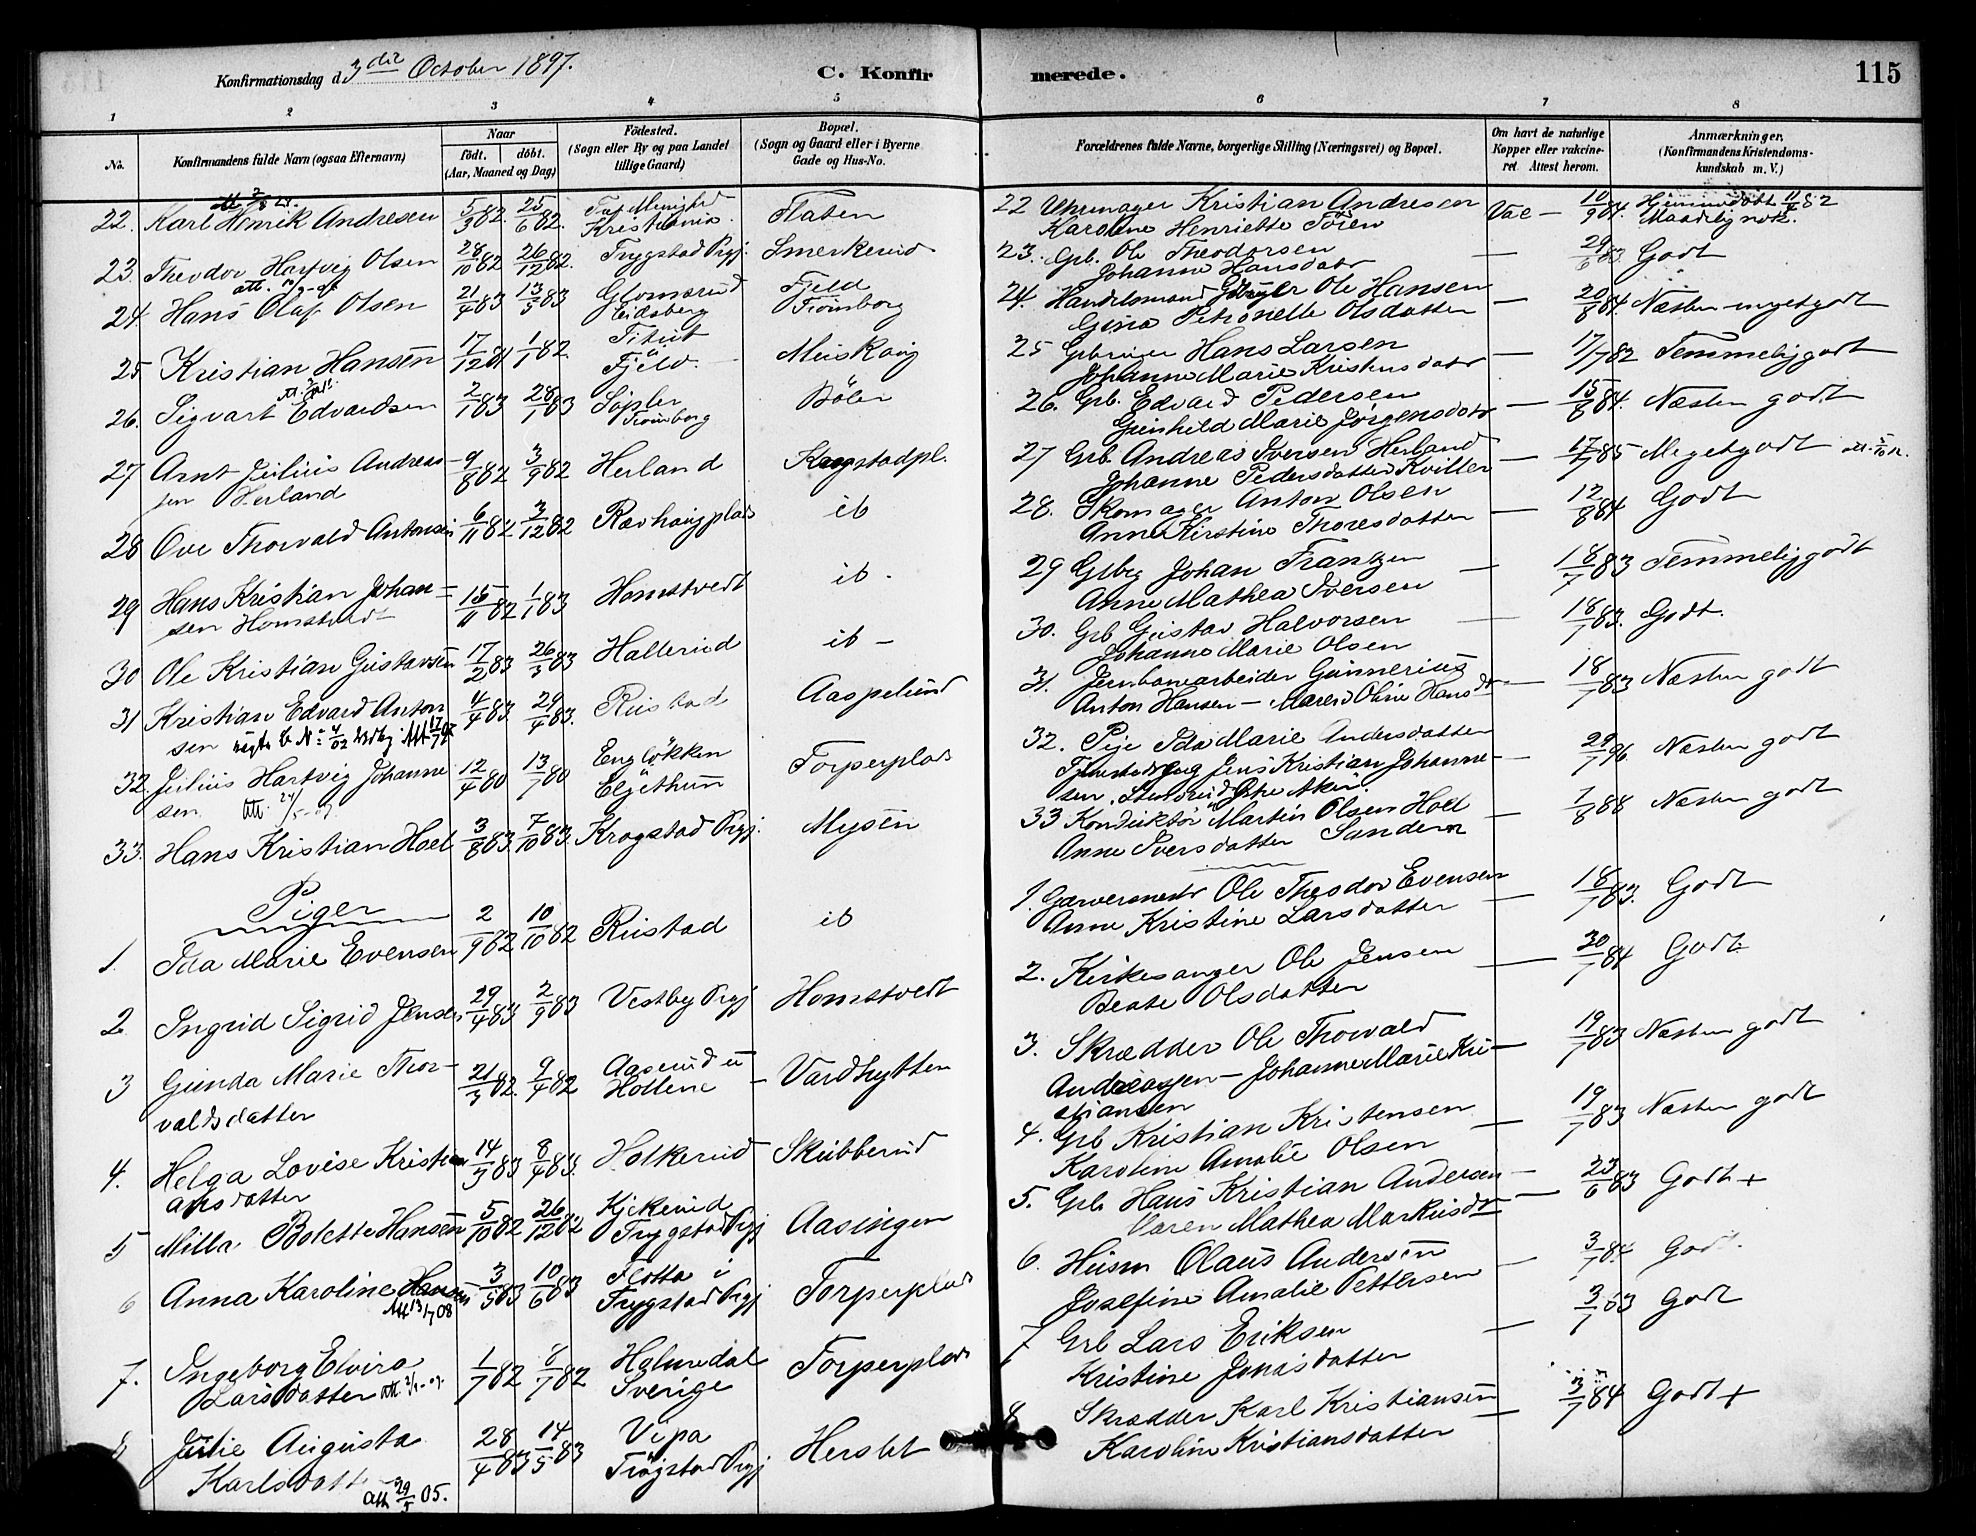 Konfirmationsdag d. 3die October 1897.
C. Konfir
1 2 3 4 5
No. Konfirmandens fulde Navn (ogsaa Efternavn)
Naar
født. døbt.
(Aar, Maaned og Dag)
Födested.
(Sogn eller By og paa Landet
tillige Gaard)
Bopæl.
(Sogn og Gaard eller i Byerne
Gade og Hus-No.
22. Karl Henrik Andresen 5/3 82. 25/6 82. Kristiania. Flaten
23. Theodor Hartvig Olsen 28/10 82 26/12 82. Trygstad Prgj. Smerkerud
24. Hans Olaf Olsen 21/4 83 13/5 83 Glomsrud Fjeld
Eidsberg Trömborg
25 Kristian Hansen 17/12 81 1/1 82. Meiskaug
Fjeld.
26. Sigvart Edvardsen 2/1 83 28/1 83 Böler
Trömborg
27 Arnt Julius Andreas- 9/8 82 3/9 82 Herland Kragstadpl.
sen Herland
28 Ove Thorvald Antonsen 6/11 82 3/12 82 Rævhaugplads ib
29 Hans Kristian Johan- 15/11 82 1/1 83 Homstvedt ib.
sen Homstvedt
30 Ole Kristian Gustavsen 17/2 83 26/3 83 Hallerud ib -
31 Kristian Edvard Anton 4/4 83. 29/4 83. Rustad Aaspelund
sen
32. Julius Hartvig Johanne 12/4 80 13/7 80 Englökken Torperplads
sen. Att. 24/5-09. Eljethun
33. Hans Kristian Hoel 3/8 83. 7/10 83. Krogstad Prgj. Mysen
Piger
1. Ida Marie Evensen 2/9 82 10/10 82 Rustad ib
2 Ingrid Sigrid Jensen 29/4 83 2/9 83 Vestby Prgj Homstvedt
3 Gunda Marie Thor- 21/3 82. 9/4 82 Aaserud u Vardhytten
valdsdatter
4. Helga Lovise Kristi 14/3 83 8/4 83. Holkerud Skubberud
ansdatter
5 Milla Bolette Hansen 5/10 82 26/12 82 Kjikerud Aasingen
Trygstad Prgj
6 Anna Karoline Hansen 3/5 83 10/6 83 Flotta i Torperplads
Att 13/7 08 Trygstad Prgj
7. Ingeborg Elvira 1/7 82 8/7 82 Torperplads
Larsdatter Sverige
Julie Augusta 28/4 83 14/5 83 Vipa Herslet
Karlsdatt Trögstad Prgj.
Att 29/5 05.
merede. 115
6 7 8
Forældrenes fulde Navne, borgerlige Stilling (Næringsvei) og Bopæl.
Om havt de naturlige
Kopper eller vakcine-
ret Attest herom.
Anmærkninger,
(Konfirmandens Kristendoms-
kundskab m. V.)
22 Uhrmager Kristian Andresen Vac - 10/9 84.
Karoline Henriette Maadelig nok.
23. Grb. Ole Theodorsen — 29/6 83 Godt
Johanne Hansdatr
24. Handelsmand Ole Hansen — 20/8 84 Næsten megetgodt
Gina Petronelle Olsdatter
25 Gbruger Hans Larsen — 17/7 82 Temmelig godt
Johanne Marie
26. Grb. Edvard Pedersen — 15/8 84. Næsten godt
Gunhild Marie Jørgensdatr
27 Grb Andreas Iversen Herland — 17/7 85 Megetgodt
Johanne Pedersdatter Kviller
28. Skomager Anton Olsen — 12/8 84 Godt
Anne Kirstine Thoresdatter
29 Gbrg Johan Frantzen — 18/7 83 Temmelig godt
Anne Mathea Iversen
30. Grb Gustav Halvorsen — 18/7 83. Godt.
Johanne Marie Olsen
31. Jernbanearbeider Gunnerius — 18/7 83 Næsten godt
Anton Hansen - Maren Oline Hansdr
32. Pige Ida Marie Andersdatter — 29/7 96 Næsten godt
Jens Kristian Johanne-
sen,
33 Konduktör Martin Olsen Hoel — 7/8 88 Næsten godt
Anne Iversdatter Sanderen
1. Garvermestr Ole Theodor Evensen — 18/7 83. Godt
Anne Kristine Larsdatter
2. Kirkesanger Ole Jensen — 30/7 84 Godt.
Beate Olsdatter
3. Skrædder Ole Thorvald — 19/7 83 Næsten godt
Andreassen - Johanne Marie Kri-
stiansen
4. Grb Kristian Kristensen — 19/7 83 Næsten godt
Karoline Amalie Olsen
5. Grb Hans Kristian Andersen — 23/6 83 Godt +
Maren Mathea Markusdr
6. Husm Olaus Andersen — 3/7 84 Godt.
Josefine Amalie Pettersen
7 Grb Lars Eriksen — 3/7 83 Godt
Kristine Jonasdatter
8 Skrædder Karl Kristiansen — 3/7 84 Godt +
Karoline Kristiansdatter